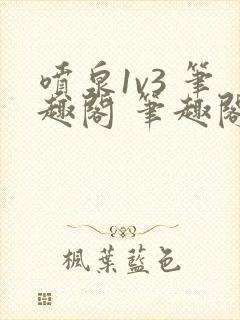 噴泉1v3 筆
趣閣 筆趣閣
楓葉藍色